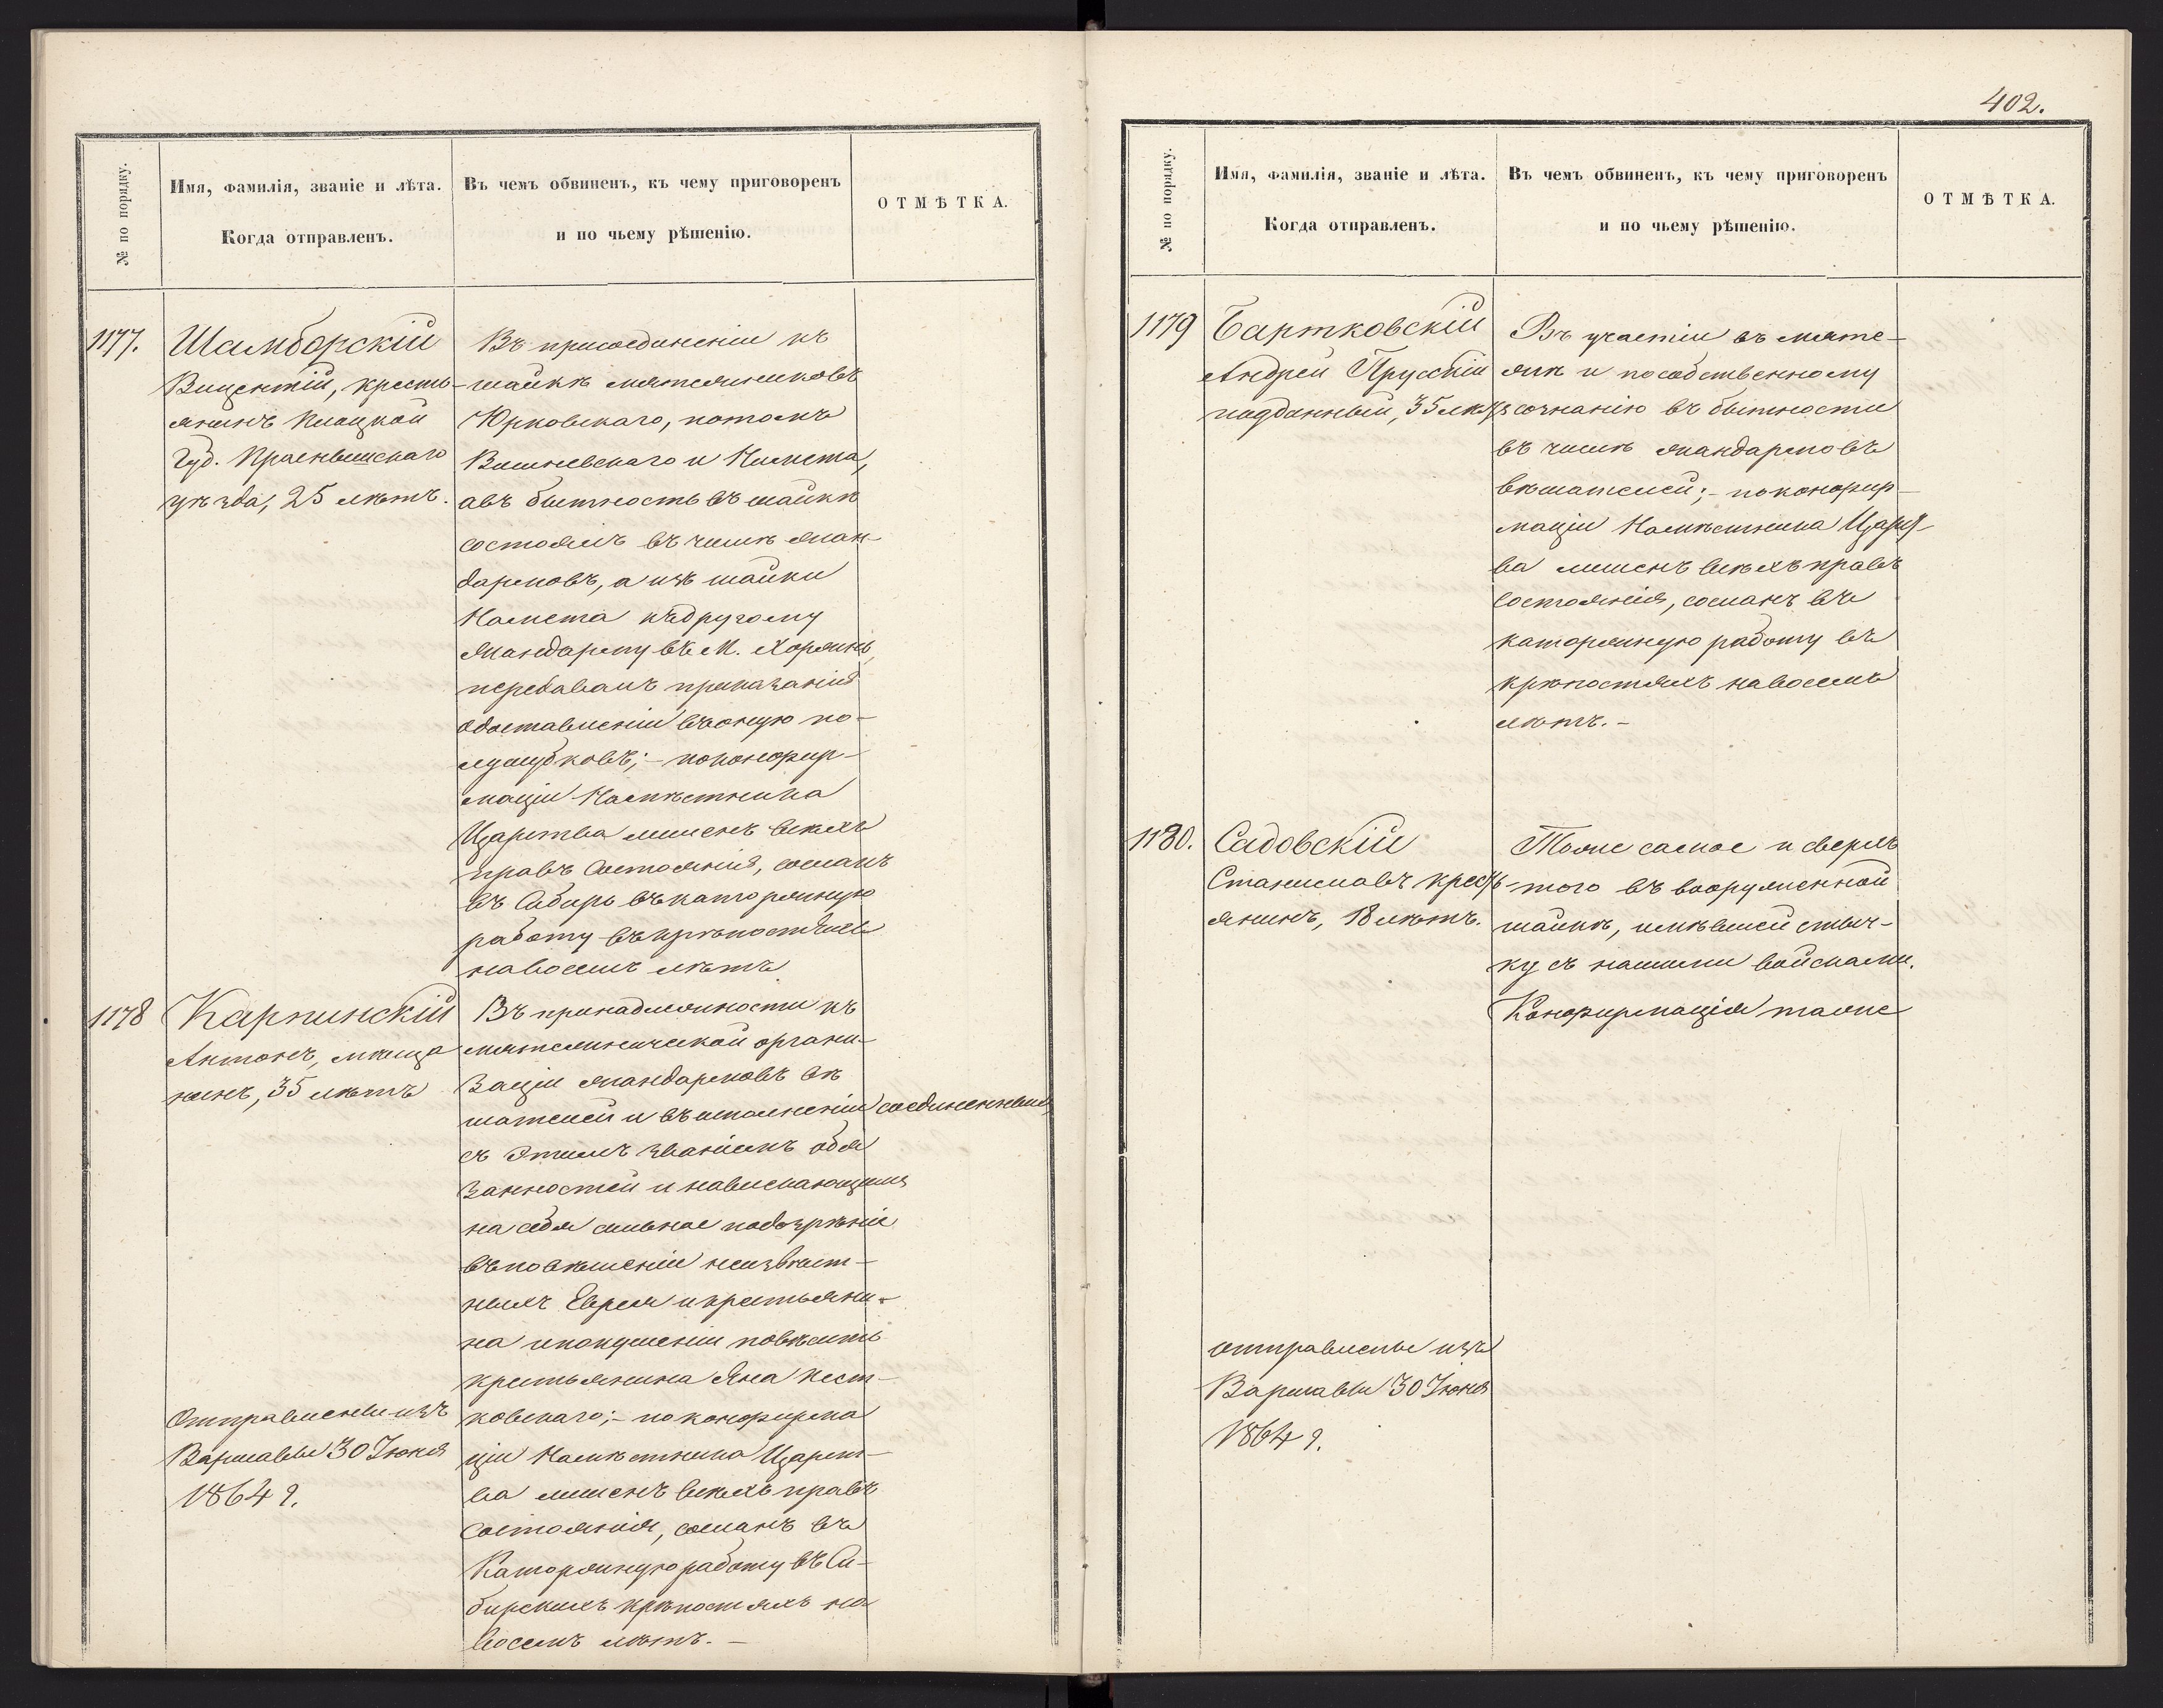 402.
№ по порядку.
Имя, фамилія, званіе и лѣта.
Когда отправленъ.
Въ чемъ обвиненъ, къ чему приговоренъ
и по чьему рѣшенію.
ОТМѢТКА.
1177.
Шамборскій
Вицентій, кресть-
янинъ Плоцкой
Губ. Праснышскаго
уѣзда, 25 лѣтъ.
Въ присоединеніи къ
шайкѣ мятежниковъ
Юрковскаго, потомъ
Вишневскаго и
а въ бытность въ шайкѣ
состоялъ въ числѣ жан-
дармовъ, а изъ шайки
къ другому
жандарму въ М.
передавалъ приказанія
о доставленіи въ оную по-
лушубковъ; - по конфир-
маціи Намѣстника
Царства лишенъ всѣхъ
правъ состоянія, сосланъ
въ Сибирь въ каторжную
работу въ крѣпостяхъ
на восемь лѣтъ
1178
Карпинскій
Антонъ, мѣща
нинъ, 35 лѣтъ
Отправлены изъ
Варшавы 30 Іюня
1864 г.
Въ принадлежности къ
мятежнической органи-
заціи жандармовъ вѣ
шателей и въ исполненіи соединенныхъ
съ этимъ званіемъ обя
занностей и навлекающимъ
на себя сильное подозрѣніе
въ повѣшеніи неизвѣст-
ныхъ Еврея и крестьяни-
на и покушеніи повѣсить
крестьянина Яна Пест-
ковскаго; - по конфирма
ціи Намѣстника Царст-
ва лишенъ всѣхъ правъ
состоянія, сосланъ въ
Каторжную работу въ Си-
бирскихъ крѣпостяхъ на
восемь лѣтъ. -
№ по порядку.
Имя, фамилія, званіе и лѣта.
Когда отправленъ.
Въ чемъ обвиненъ, къ чему приговоренъ
и по чьему рѣшенію.
ОТМѢТКА.
1179
Бартковскій
Андрей Прусскій
подданный, 35 лѣтъ
Въ участіи въ мяте-
жѣ и по собственному
сознанію въ бытности
въ числѣ жандармовъ
вѣшателей; - по конфир-
маціи Намѣстника Царст-
ва лишенъ всѣхъ правъ
состоянія, сосланъ въ
каторжную работу въ
крѣпостяхъ на восемь
лѣтъ. -
1180.
Садовскій
Станиславъ кресть-
янинъ, 18 лѣтъ.
Тоже самое и сверхъ
того въ вооруженной
шайкѣ, имѣвшей стыч-
ку съ нашими войсками.
Конфирмація таже
отправлены изъ
Варшавы 30 Іюня
1864 г.